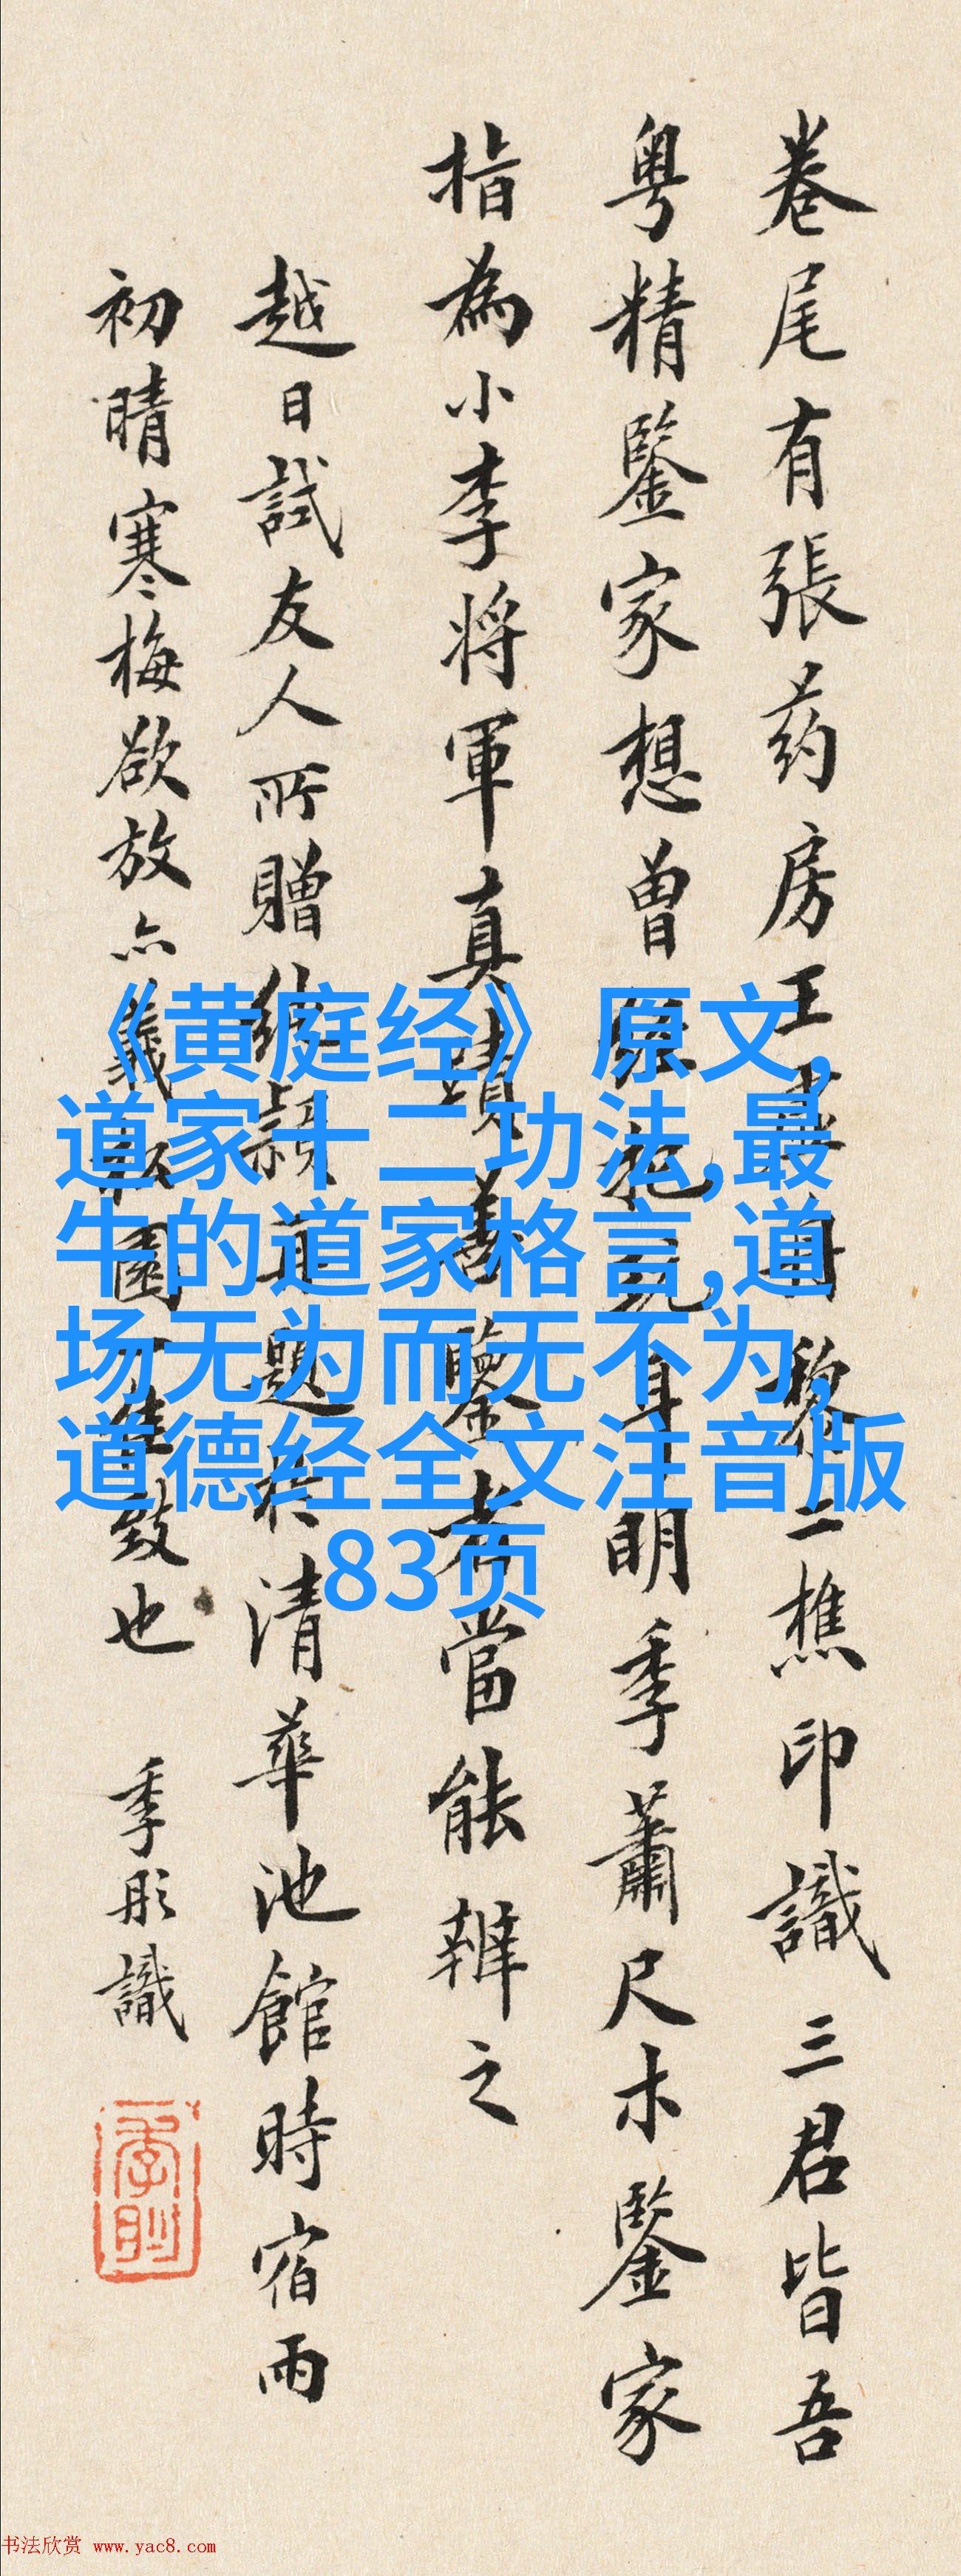 卷尾有張药房王黎二樵印識三君皆吾
粵精鑒家想曾耳明季蕭尺木鑒家
指為小李將軍真蹟善鑒者當能辨之
越日試友人所贈題於清華池館時宿雨
初晴寒梅欲放亦園佳致也 季彤識
《黄庭经》原文,
道家十二功法,最
牛的道家格言,道
场无为而无不为,
道德经全文注音版
83页
书法欣赏 www.yac8.com